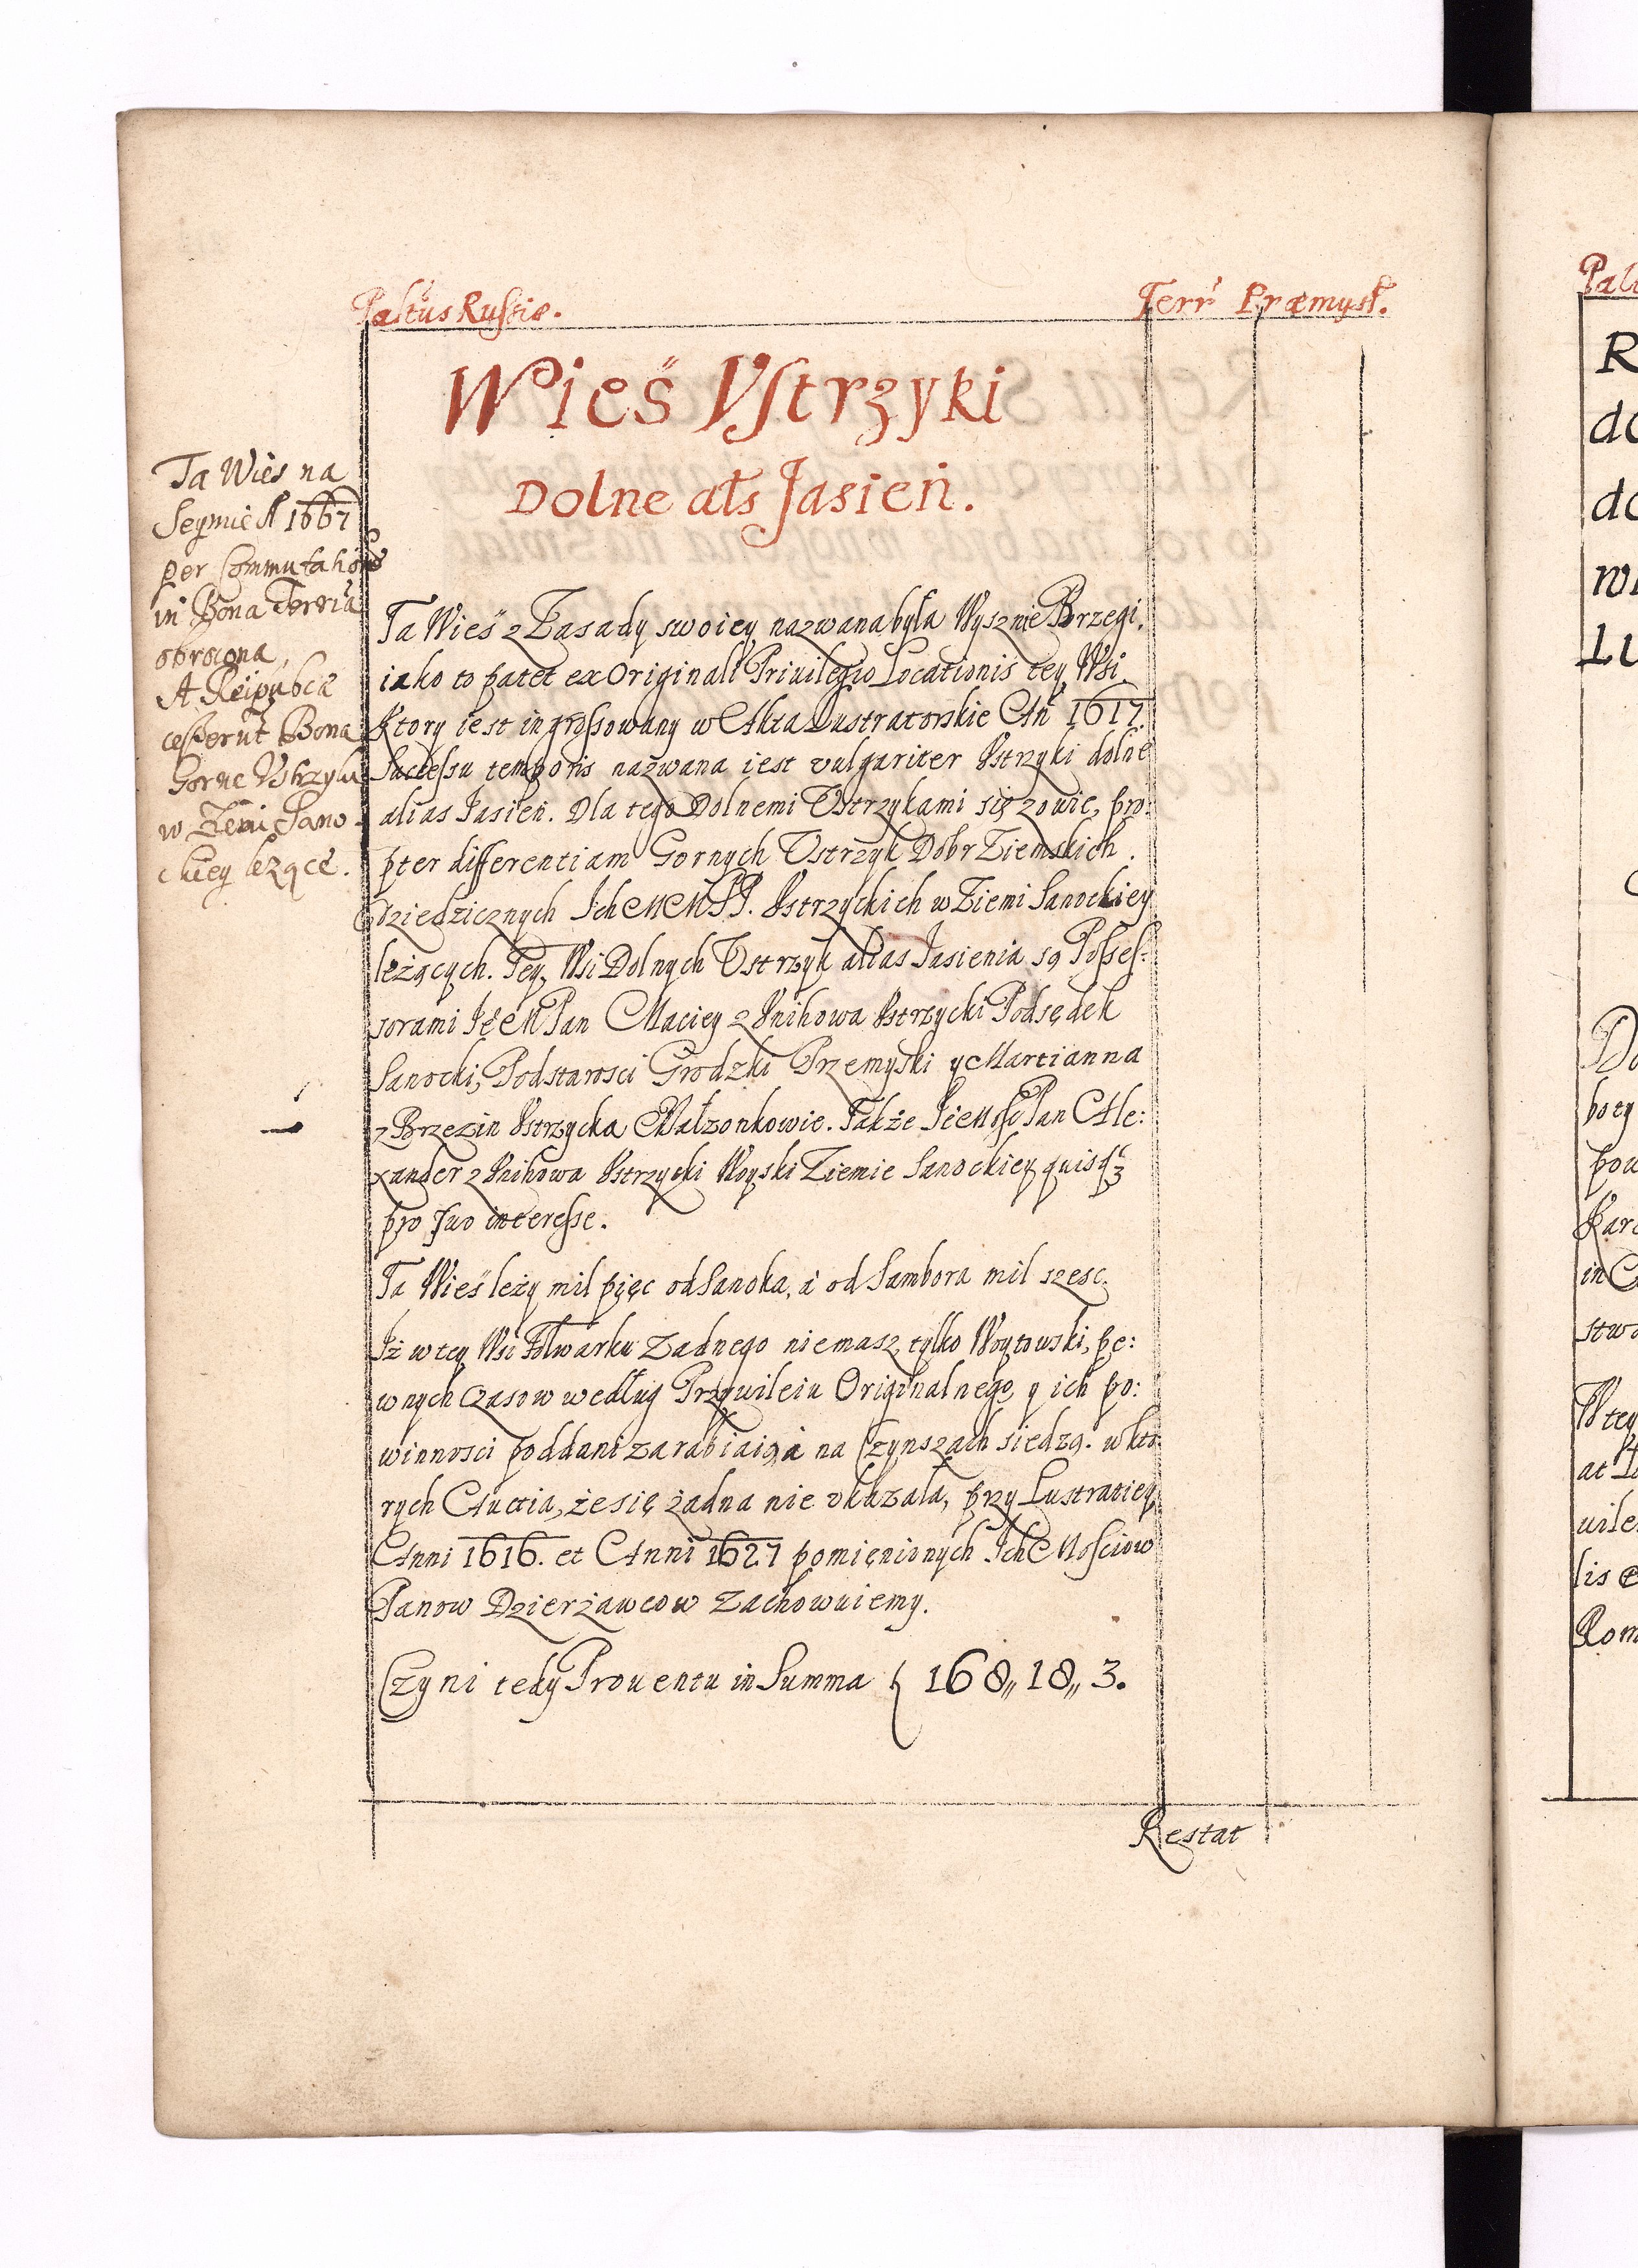 Paltus Russiæ.
Terr Præmysl.
Wieś Vstrzyki
Dolne als Jasień.
Ta Wies na
Seymie A 1667
per Commutahone
in Bona Terria
obrocona,
A Reipubcæ
cesserut Bona
Gorne Ustrzyki
w Zemi Sano-
ckiey lezące.
Ta Wieś z Zasady swoiey nazwana była Wysznie Brzegi,
iako to patet ex Originali Priuilegio Locationis tey Wsi.
Ktory iest ingrossowany w Akta Lustratorskie An 1617.
Successu temporis nazwana iest vulgariter Vstrzyki dolne
alias Jasien. Dla tego Dolnemi Vstrzykami się zowie, pro:
pter differentiam Gornych Vstrzyk Dobr Ziemskich.
Dziedzicznych Ich MM PP. Vstrzyckich w Ziemi Sanockiey
leżących. Tey, Wsi Dolnych Vstrzyk alias Jasienia są Posses:
sorami Je M Pan Maciey z Vnihowa Vstrzycki Podsędek
Sanocki, Podstarosci Grodzki Przemyski y Martianna
z Brzezin Vstrzycka Małzonkowie. Także Je Mosc Pan Ale:
xander z Vnihowa Vstrzycki Woyski Ziemie Sanockiey quisqz
pro suo interesse.
Ta Wieś leży mil pięc od Sanoka, á od Sambora mil szesc.
Iż w tey Wsi Folwarku Zadnego niemasz, tylko Woytowski, pe:
wnych Czasow według Przywileiu Originalnego y ich po:
winnosci poddani zarabiaią á na Czynszach siedzą. w kto
rych Auctia, że się żadna nie vkazala, przy Lustratiey
Anni 1616. et Anni 1627 pomięnionych Ich Mosciow
Panow Dzierżawcow zachowuiemy.
Czyni tedy Prouentu in Summa { 168,, 18,, 3.
Restat